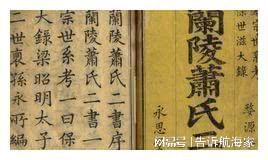 世滋大錄
婺源
蘭陵蕭氏
永思
蘭陵蕭氏二書序
蘭陵蕭氏二書一
宗世系考一曰保
大錄梁昭明太子
二世裔孫永所編
搜狐号@告诉航海家